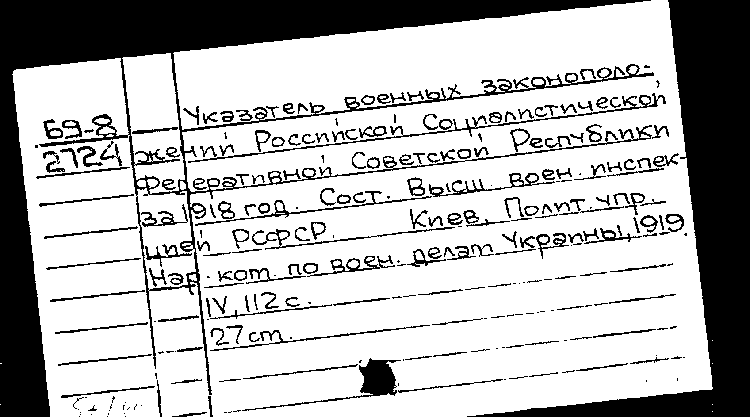 69-8
2724
Указатель военных законополо-
жений Российской Социалистической
Федеративной Советской Республики
за 1918 год. Сост. Высш. воен. инспек-
цией РСФСР. Киев, Полит. упр.
Нар. ком. по воен. делам Украины, 1919.
IV, 112 с.
27 cm.